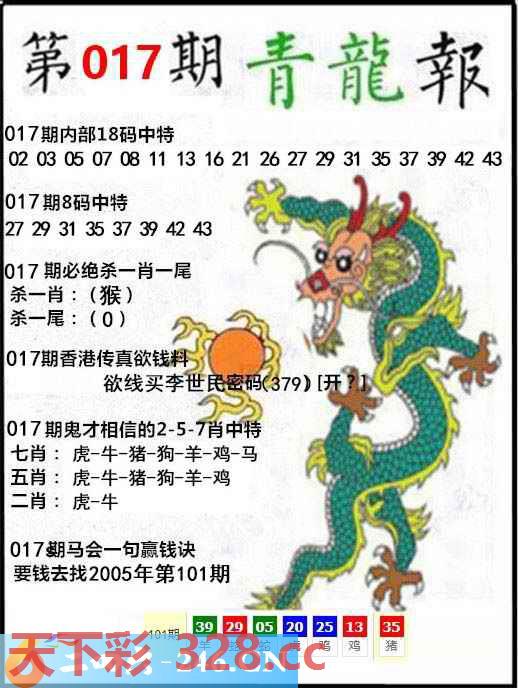 第017期青龍報
017期内部18码中特
02 03 05 07 08 11 13 16 21 26 27 29 31 35 37 39 42 43
017期8码中特
27 29 31 35 37 39 42 43
017期必绝杀一肖一尾
杀一肖：（猴）
杀一尾：（0）
017期香港传真欲钱料
欲线买李世民密码(379)[开？]
017期鬼才相信的2-5-7肖中特
七肖：虎-牛-猪-狗-羊-鸡-马
五肖：虎-牛-猪-羊-鸡
二肖：虎-牛
017期马会一句赢钱诀
要钱去找2005年第101期
101期 39 29 05 20 25 13 35
羊 蛇 虎 鸡 鸡 猪
天下彩-328.cc